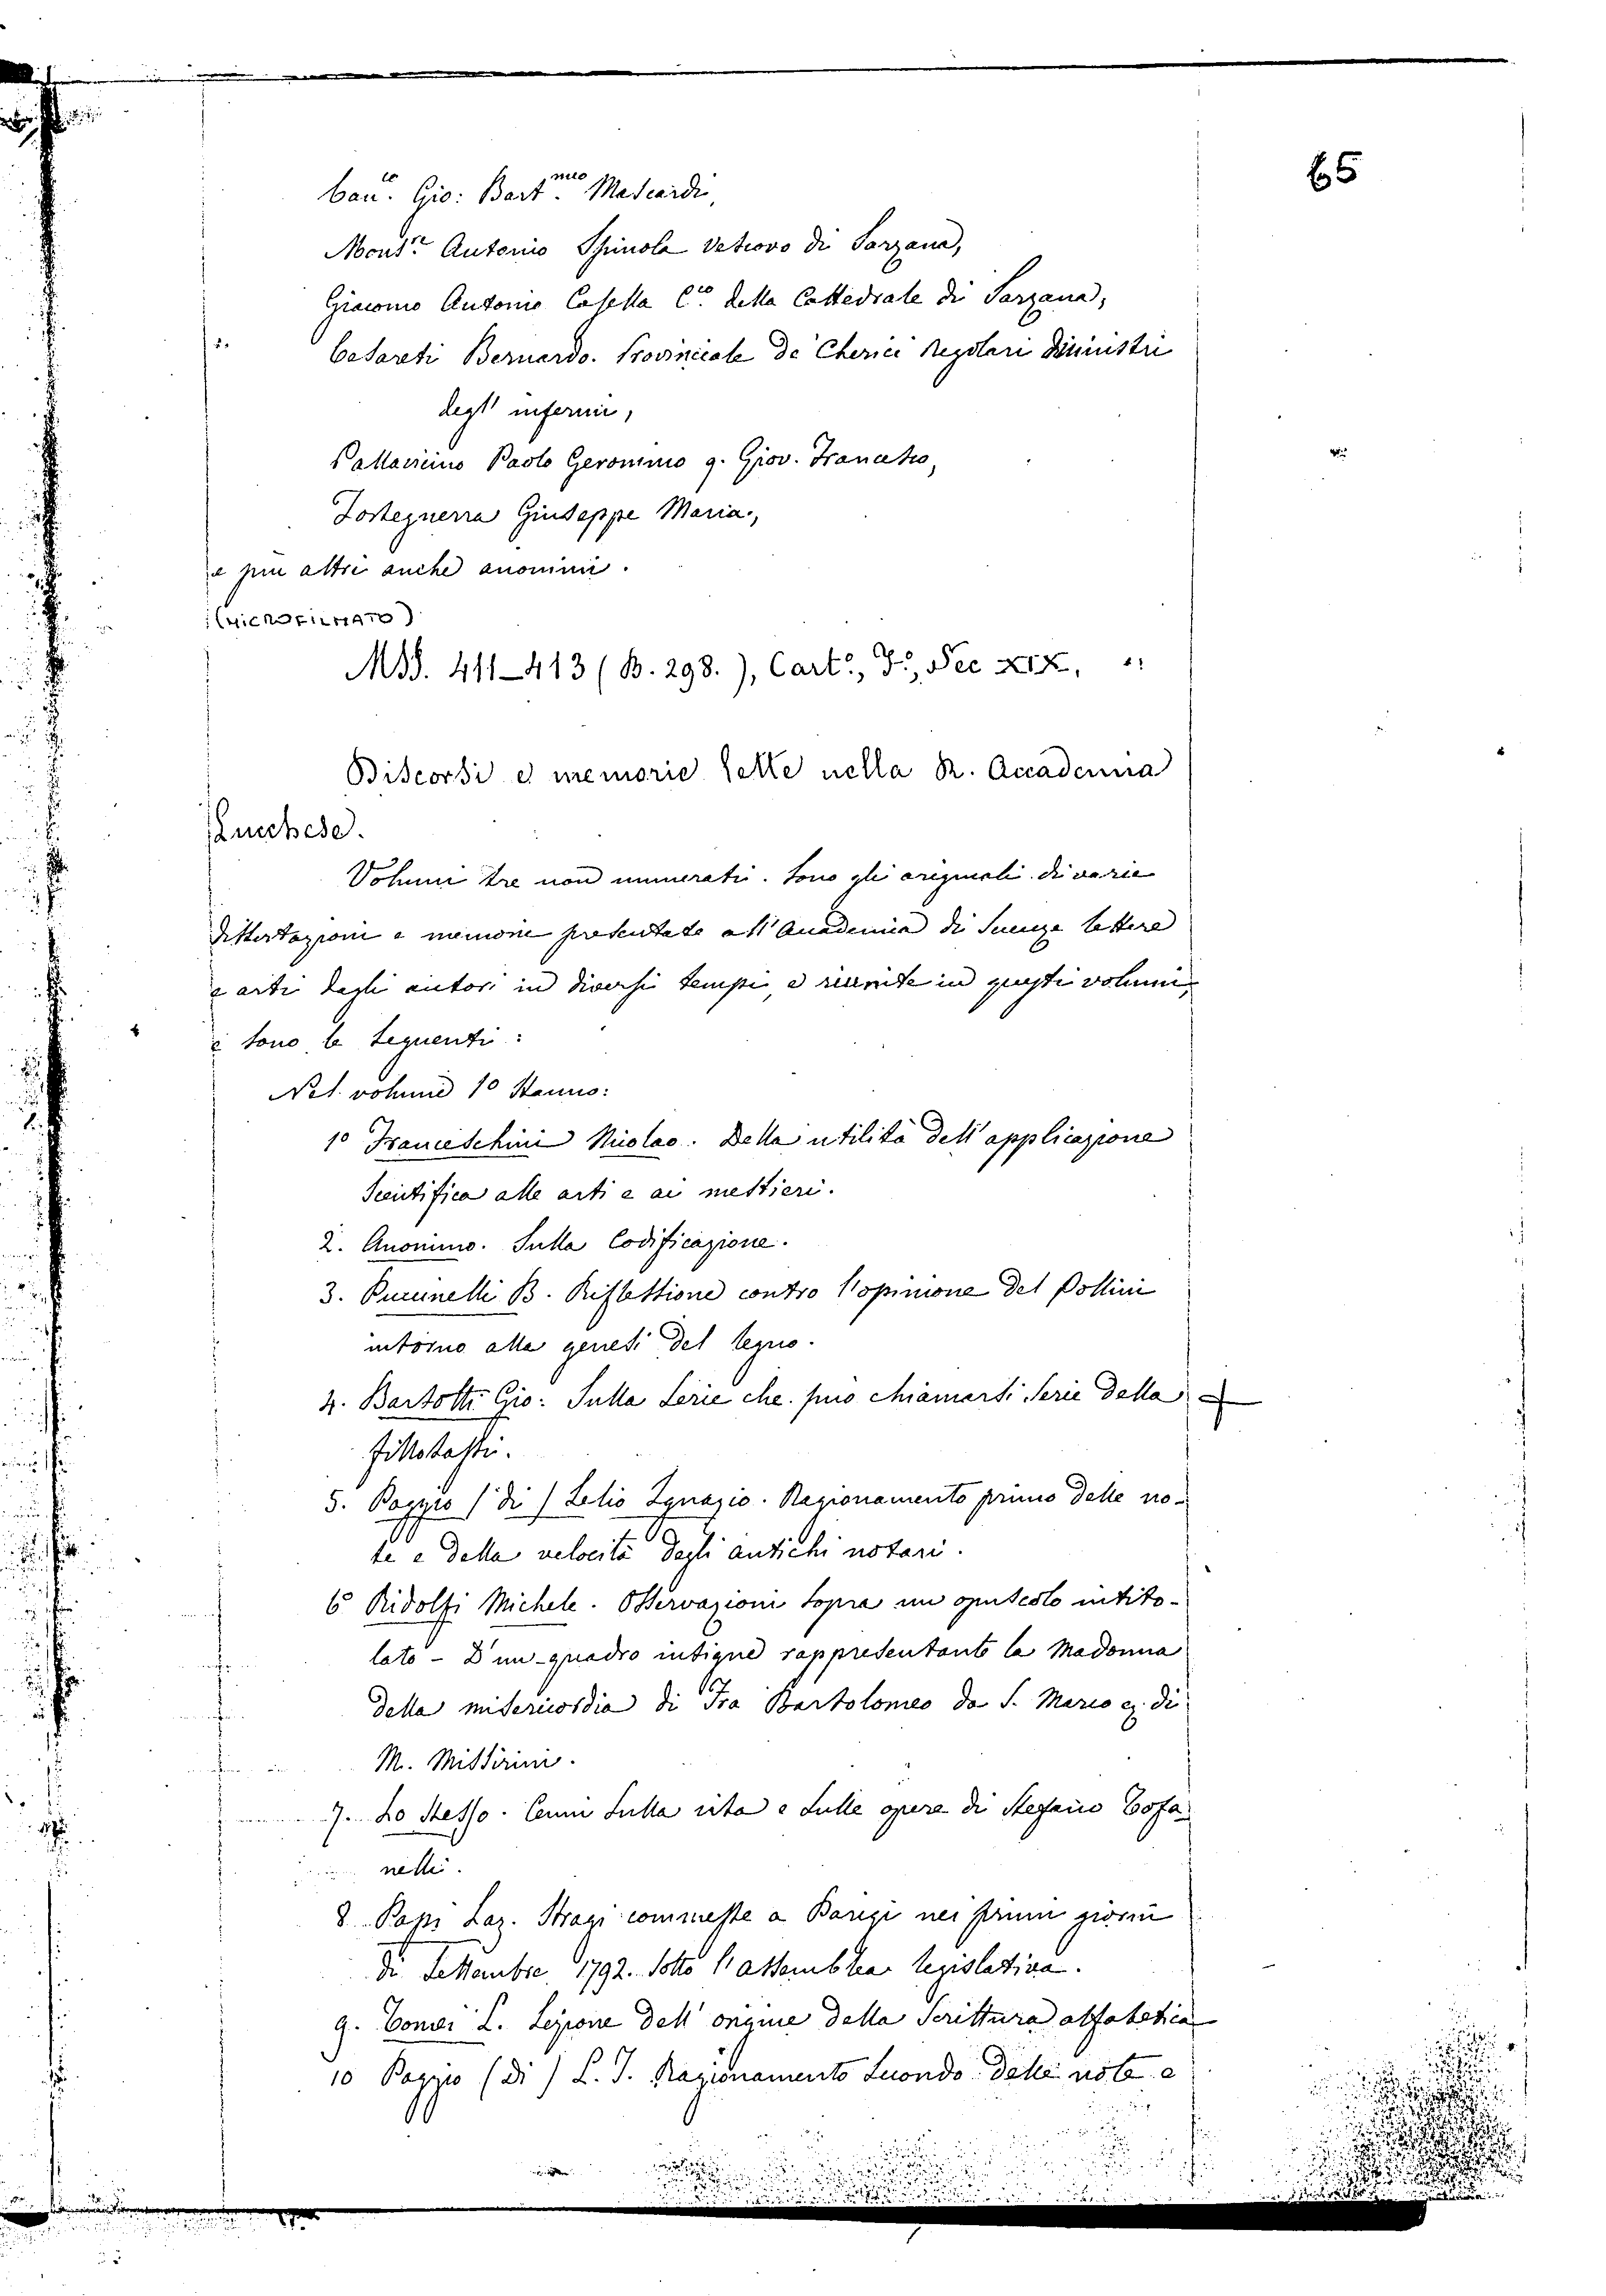 65
Cau.co Gio: Bart.meo Mascardi,
Mons.r Antonio Spinola Vescovo di Sarzana,
Giacomo Antonio Casella C.co della Cattedrale di Sarzana,
Casareti Bernardo. Provinciale de' Cherici Regolari Ministri
degl' infermi,
Pallavicino Paolo Geronimo q. Giov. Francesco,
Forteguerra Giuseppe Maria,
e più altri anche anonimi.
(MICROFILMATO)
MSS. 411-413 (B. 298.), Cart.°, F.°, Sec XIX.
Discorsi e memorie lette nella R. Accademia
Lucchese.
Volumi tre non numerati. Sono gli originali di varie
dissertazioni e memorie presentate all'Accademia di Scienze lettere
e arti dagli autori in diversi tempi, e riunite in questi volumi,
e sono le seguenti:
Nel volume 1° stanno:
1° Franceschini Nicolao. Della utilità dell'applicazione
Scientifica alle arti e ai mestieri.
2. Anonimo. Sulla Codificazione.
3. Puccinelli B. Riflessione contro l'opinione del Pollini
intorno alla genesi del legno.
4. Bartolli Gio: Sulla Serie che può chiamarsi Serie della
fillotassi.
5. Poggio (di) Lelio Ignazio. Ragionamento primo delle no-
te e della velocità degli antichi notari.
6° Ridolfi Michele. Osservazioni sopra un opuscolo intito-
lato - D'un quadro insigne rappresentante la Madonna
della misericordia di Fra Bartolomeo da S. Marco ec. di
M. Missirini.
7. Lo Stesso. Cenni sulla vita e sulle opere di Stefano Tofa-
nelli.
8 Papi Laz. Stragi commesse a Parigi nei primi giorni
di Settembre 1792. sotto l'assemblea legislativa.
9. Tomei L. Lezione dell'origine della Scrittura alfabetica
10 Poggio (di) L. I. Ragionamento Secondo delle note e